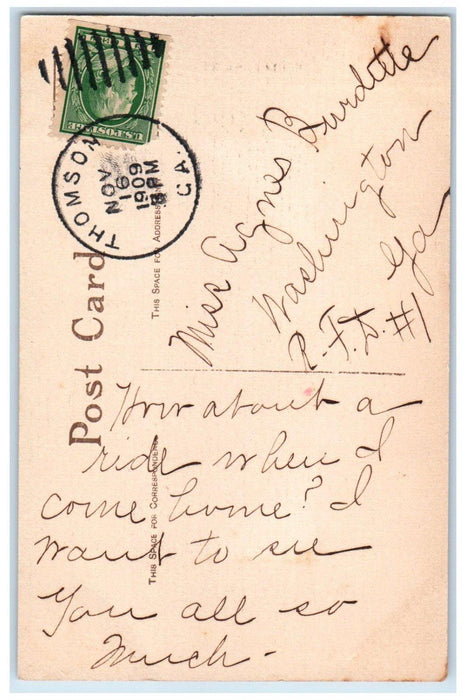 U.S. POSTAGE
THOMSON GA.
NOV
16
1909
Post Card
THIS SPACE FOR ADDRESS
THIS SPACE FOR CORRESPONDENCE
Miss Agnes Burdette
Washington
Ga
R.F.D. #1
How about a
ride when I
come home? I
want to see
you all so
much-